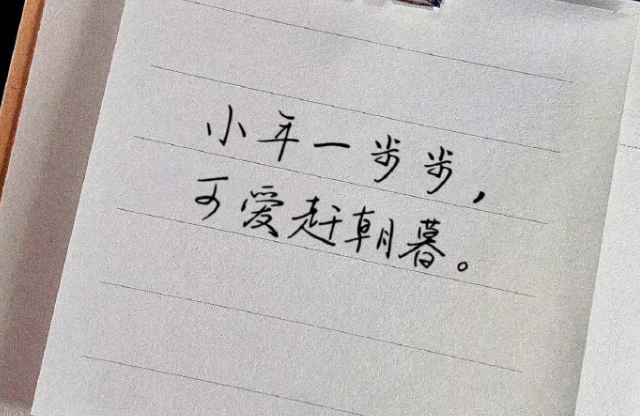 小年一步步，
可爱赶朝暮。